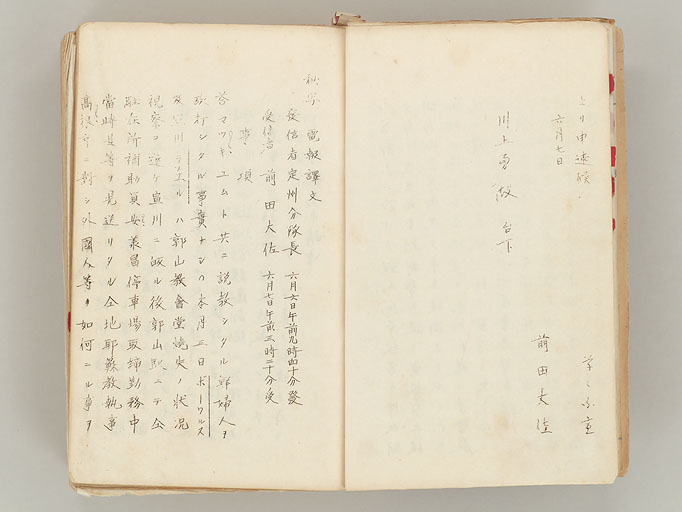 より申進候、
六月七日
川上勇殿 台下
草々不宣
前田大佐
秘写 電報譯文
發信者定州分隊長 六月六日午前九時四十分發
受信者 前田大佐 六月七日午前三時二十分受
事項
答マツキユムト共ニ説教シタル韓婦人ヲ
殴打シタル事實ナシ〇本月三日ボーウルス
及宣川 ハ郭山教會堂燒失ノ状況
視察ヲ遂ケ宣川ニ皈ル後郭山駅ニテ仝
駐在所補助員安義昌停車場取締勤務中
當時是等ヲ見送リタル仝地耶蘇教執事
ニ對シ外國人等ヲ如何ニル事ヲ